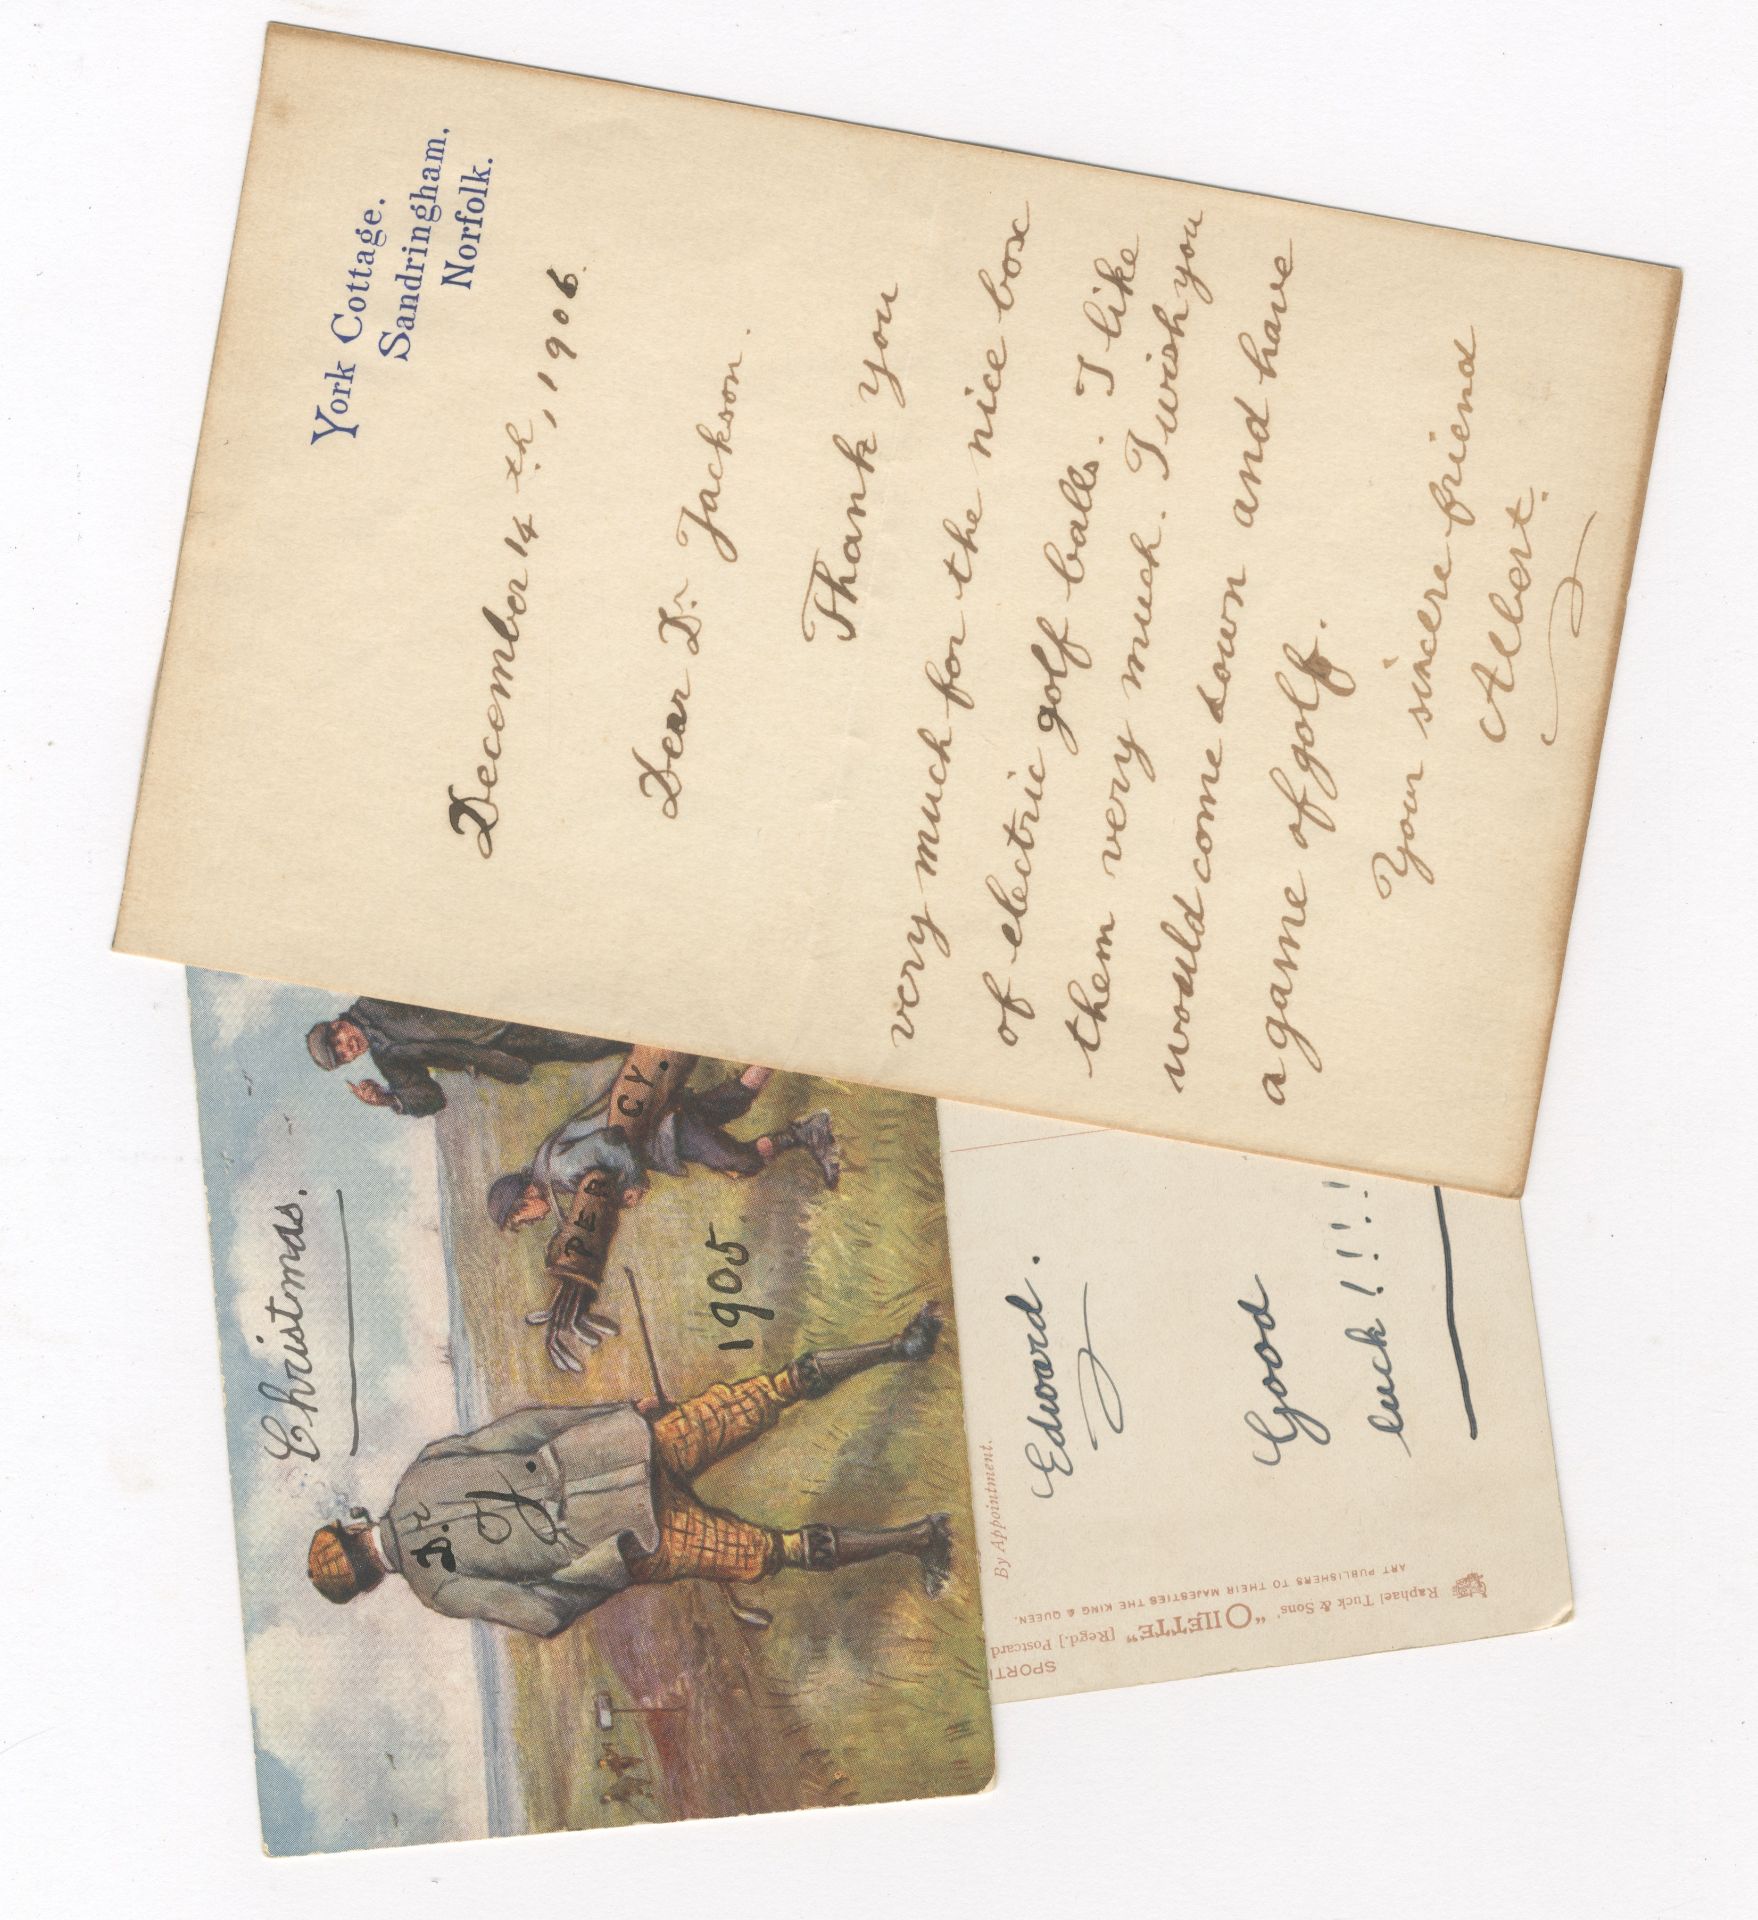 York Cottage.
Sandringham,
Norfolk.
December 14th, 1906.
Dear Dr. Jackson.
Thank you
very much for the nice box
of electric golf balls. I like
them very much. I wish you
would come down and have
a game of golf.
Your sincere friend
Albert.
Christmas.
Dr
J.
PERCY.
1905.
By Appointment.
Edward.
Good
luck!!!!
Raphael Tuck & Sons' "OILETTE" [Regd.] Postcard
ART PUBLISHERS TO THEIR MAJESTIES THE KING & QUEEN.